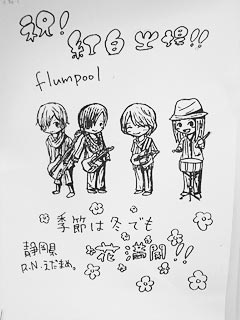 祝!
紅白出場!!
flumpool
季節は冬でも
花満開!!
静岡県
R.N.えだまめ。